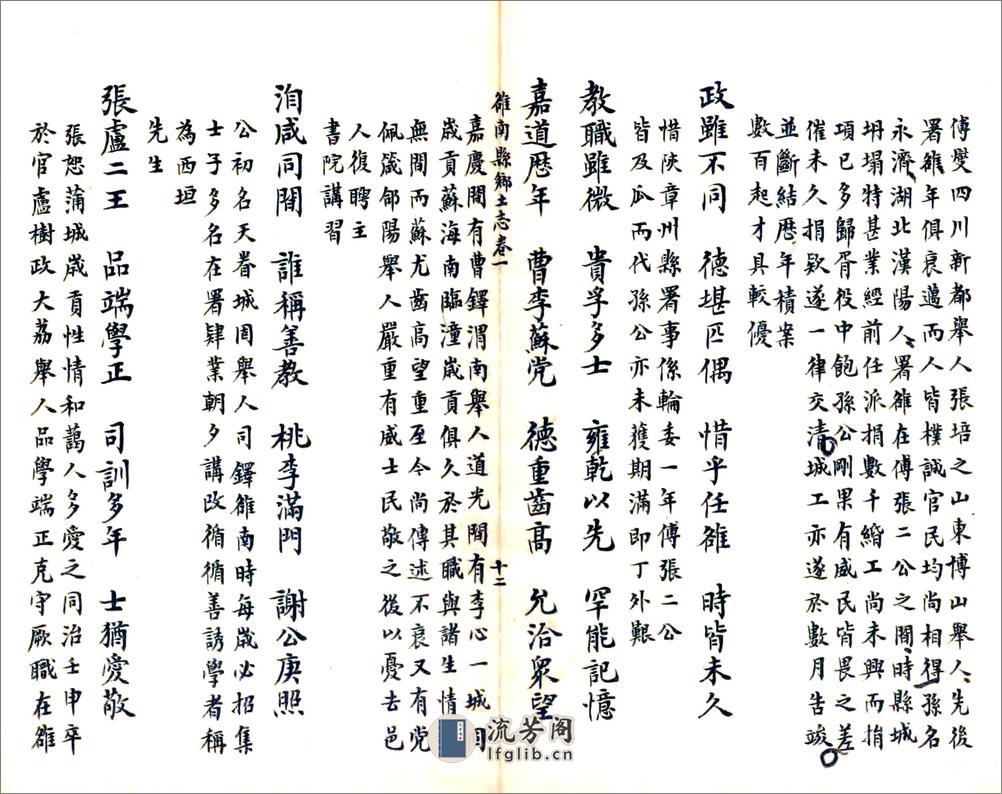 傅燮四川新都舉人張培之山東博山舉人先後
署雒年俱衰邁而人皆樸誠官民均尚相得孫名
永濟湖北漢陽人署雒在傅張二公之間時縣城
坍塌特甚業經前任派捐數千緡工尚未興而捐
項已多歸胥役中飽孫公剛果有威民皆畏之差
催未久捐欵遂一律交清城工亦遂於數月告竣
並斷結歷年積案
數百起才具較優
政雖不同 德堪匹偶 惜乎任雒 時皆未久
惜陝章州縣署事係輪委一年傅張二公
皆及瓜而代孫公亦未獲期滿即丁外艱
教職雖微 貴孚多士 雍乾以先 罕能記憶
嘉道歷年 曹李蘇党 德重齒高 允洽眾望
雒南縣鄉土志卷一 十二
嘉慶間有曹鐸渭南舉人道光間有李心一城固
歲貢蘇海南臨潼歲貢俱久於其職與諸生情
無間而蘇尤齒高望重至今尚傳述不衰又有党
佩箴郃陽舉人嚴重有威士民敬之後以憂去邑
人復聘主
書院講習
洎咸同間 誰稱善教 桃李滿門 謝公庚照
公初名天眷城固舉人司鐸雒南時每歲必招集
士子多名在署肄業朝夕講改循循善誘學者稱
為西垣
先生
張盧二王 品端學正 司訓多年 士猶愛敬
張恕蒲城歲貢性情和藹人多愛之同治壬申卒
於官盧樹政大荔舉人品學端正克守厥職在雒
流芳阁
lfglib.cn